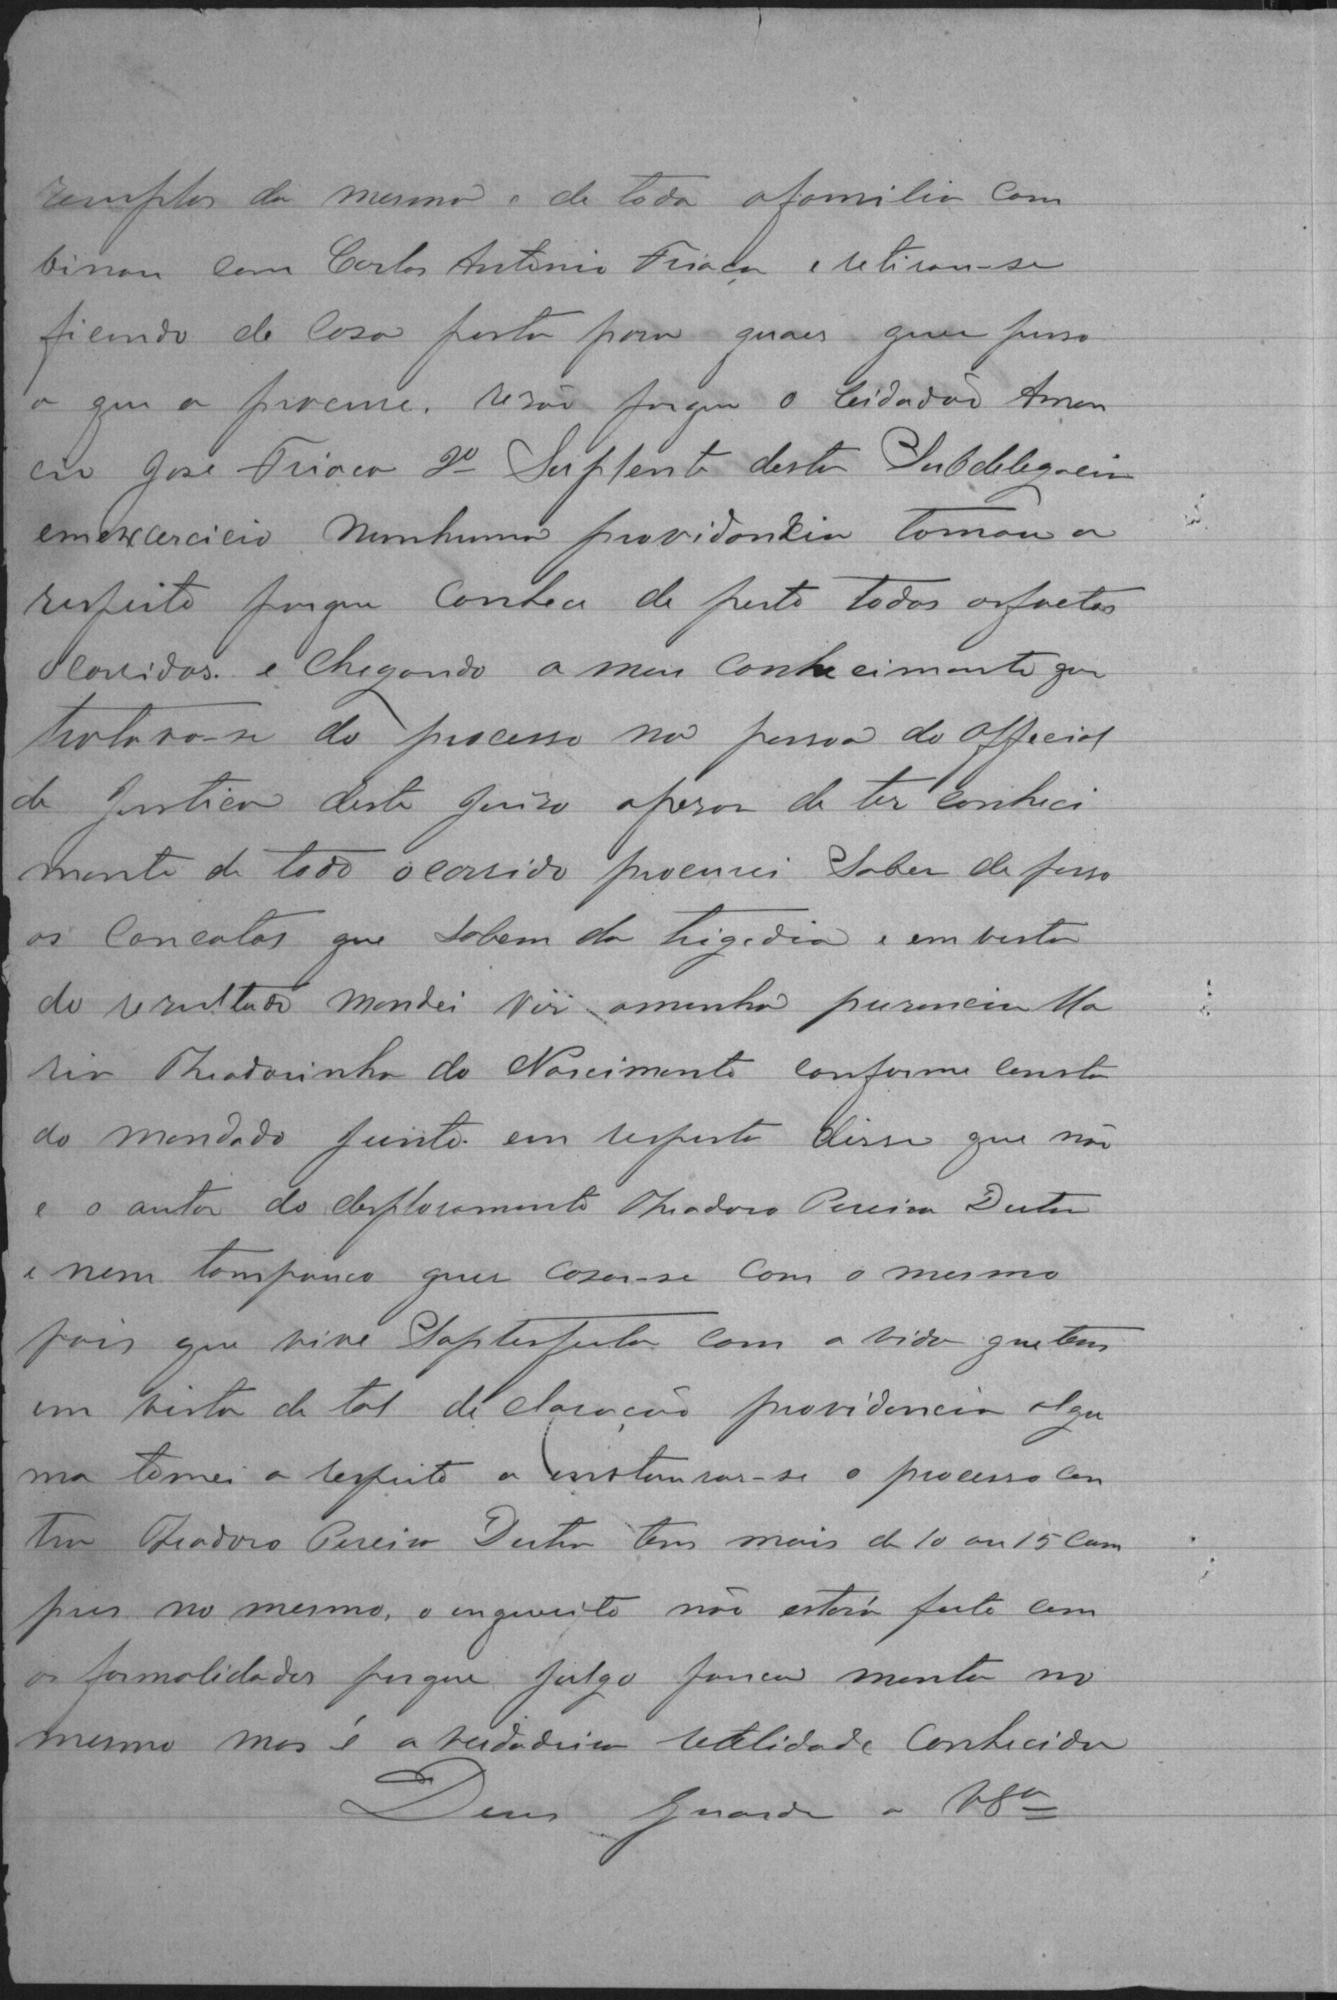 zemplos da mesma e de toda afamilia com
binou com Carlos Antonio Friaça e retirou-se
ficando de casa posta para quaes quer pesso
a que a procure. rezão porque o Cidadão Aman
cio José Friaça 2º Suplente desta Subdelegacia
emexcercicio Nenhuma providencia tomou a
respeito porque conhece de perto todos osfactos
ocorridos. e chegando a meu conhecimento que
tratava-se do processo na pessoa do official
de Justica deste Juizo apesar de ter conheci
mento de todo ocorrido procurei Saber de pesso
as que sabem da trigedia e em vista
do rezultado Mandei vir aminha prezencia Ma
ria Theadorinha do Nascimento conforme consta
do mandado junto. em resposta disse que não
e o autor do desfloramento Theadoro Pereira Dutra
e nem tampouco quer casar-se com o mesmo
pois que vive com a vida quetem
em vista de tal declaração providencia algu
ma tomei a respeito a instaurar-se o processo con
tra Theadoro Pereira Dutra tem mais de 10 ou 15 Cum
pres no mesmo, o inquerito não estará feito com
as formalidades porque julgo pouca monta no
mesmo mas é a verdadeira realidade conhecida
Deus Guarde a VSª